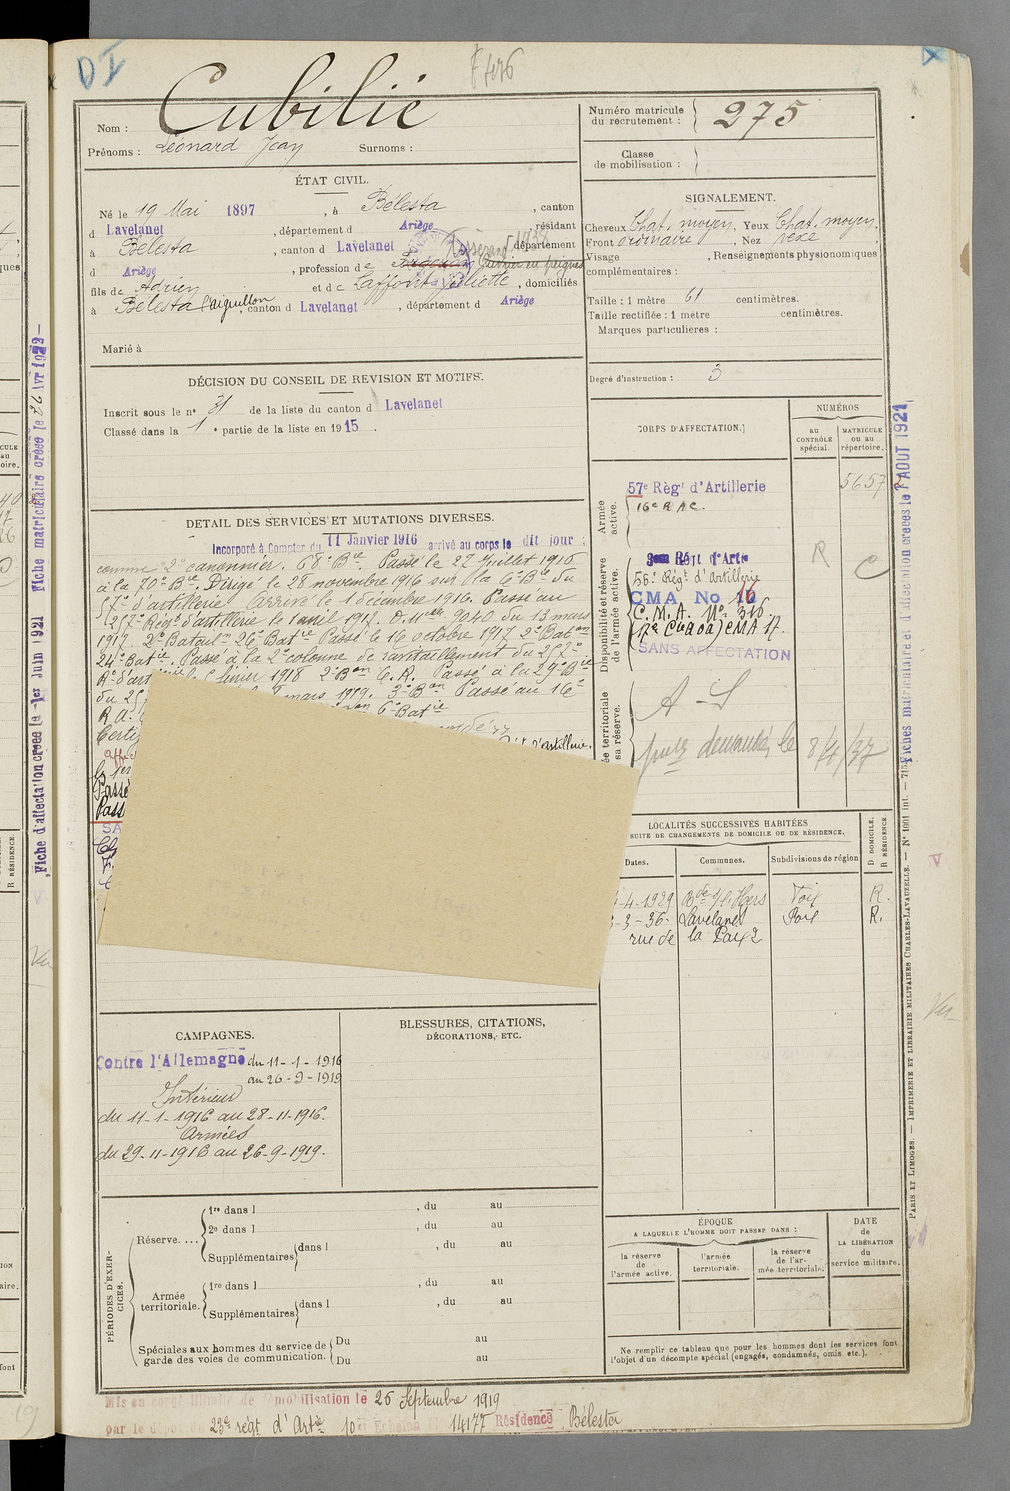 DI
F 446
Nom : Cubilié
Prénoms : Léonard Jean Surnoms :
Numéro matricule du recrutement : 275
Classe de mobilisation :
ÉTAT CIVIL.
Né le 19 Mai 1897, à Bélesta, canton
d Lavelanet, département d Ariège, résidant
à Bélesta, canton d Lavelanet département
d Ariège, profession de ouvrier en peignes
fils de Adrien et de Laffont Juliette, domiciliés
à Bélesta l'aiguillon, canton d Lavelanet, département d Ariège
Marié à
SIGNALEMENT.
Cheveux Chat. moyen, Yeux Chat. moyen,
Front ordinaire, Nez vexe
Visage , Renseignements physionomiques
complémentaires :
Taille : 1 mètre 61 centimètres.
Taille rectifiée : 1 mètre centimètres.
Marques particulières :
Degré d'instruction : 3
DÉCISION DU CONSEIL DE REVISION ET MOTIFS.
Inscrit sous le nº 31 de la liste du canton d Lavelanet
Classé dans la 1e partie de la liste en 1915.
DETAIL DES SERVICES ET MUTATIONS DIVERSES.
Incorporé à Compter du 11 Janvier 1916 arrivé au corps le dit jour
comme 2e canonnier. 68e Bie. Passé le 27 Juillet 1916
à la 70e Bie. Dirigé le 28 novembre 1916 sur la 6e Bie du
57e d'artillerie. Arrivé le 1 décembre 1916. Passé au
257e Régt d'artillerie le 1 avril 1917. O. Melle 9040 du 13 mars
1917. 2e Batailln 26e Batie Passé le 16 octobre 1917 2e Baton
24e Batie. Passé à la 2e colonne de ravitaillement du 257e
Rt d'art février 1918 2e Bon C. R. Passé à la 29e Bie
du 25 mars 1919. 3e Bon Passé au 16e
R.A. 6e Batie
Certi
d'artillerie.
Passé
Pass
SA
CORPS D'AFFECTATION.
NUMÉROS
au CONTRÔLE spécial.
MATRICULE ou au répertoire.
Armée active.
57e Régt d'Artillerie 5657
16e R A C.
Disponibilité et réserve de l'armée active.
3em Régt d'Artie
56e Régt d'Artillerie
CMA No 16
C. M. A. No 316
CMA 17.
SANS AFFECTATION
R C
ée territoriale
sa réserve.
A-S
demandé, le 8/4/37
LOCALITÉS SUCCESSIVES HABITÉES
SUITE DE CHANGEMENTS DE DOMICILE OU DE RÉSIDENCE.
Dates. Communes. Subdivisions de région D DOMICILE. R RÉSIDENCE.
-4-1929 Bde s/l'Hers Foix R.
-3-36- Lavelanet Foix R.
rue de la Paix 2
CAMPAGNES.
Contre l'Allemagne du 11-1-1916
au 26-9-1919
Intérieur
du 11-1-1916 au 28-11-1916.
Armées
du 29-11-1916 au 26-9-1919.
BLESSURES, CITATIONS,
DÉCORATIONS, ETC.
PÉRIODES D'EXERCICES.
Réserve....
1re dans l , du au
2e dans l , du au
Supplémentaires dans l , du au
Armée territoriale.
1re dans l , du au
Supplémentaires dans l , du au
Spéciales aux hommes du service de garde des voies de communication.
Du au
Du au
ÉPOQUE
A LAQUELLE L'HOMME DOIT PASSER DANS :
la réserve de l'armée active.
l'armée territoriale.
la réserve de l'armée territoriale.
DATE de LA LIBÉRATION du service militaire.
Ne remplir ce tableau que pour les hommes dont les services font
l'objet d'un décompte spécial (engagés, condamnés, omis etc.).
Mis en congé illimité de démobilisation le 26 Septembre 1919
par le dépôt du 23e régt d'Artie 10e Echelon 14177 Résidence Bélesta
Fiche d'affectation créée le 1er Juin 1921 Fiche matriculaire créée le 26 Avr 1922
Fiches matriculaire et d'affectation créées le AOUT 1921
PARIS ET LIMOGES. — IMPRIMERIE ET LIBRAIRIE MILITAIRES CHARLES-LAVAUZELLE. — Nº 1001 int. — 715.
Vu